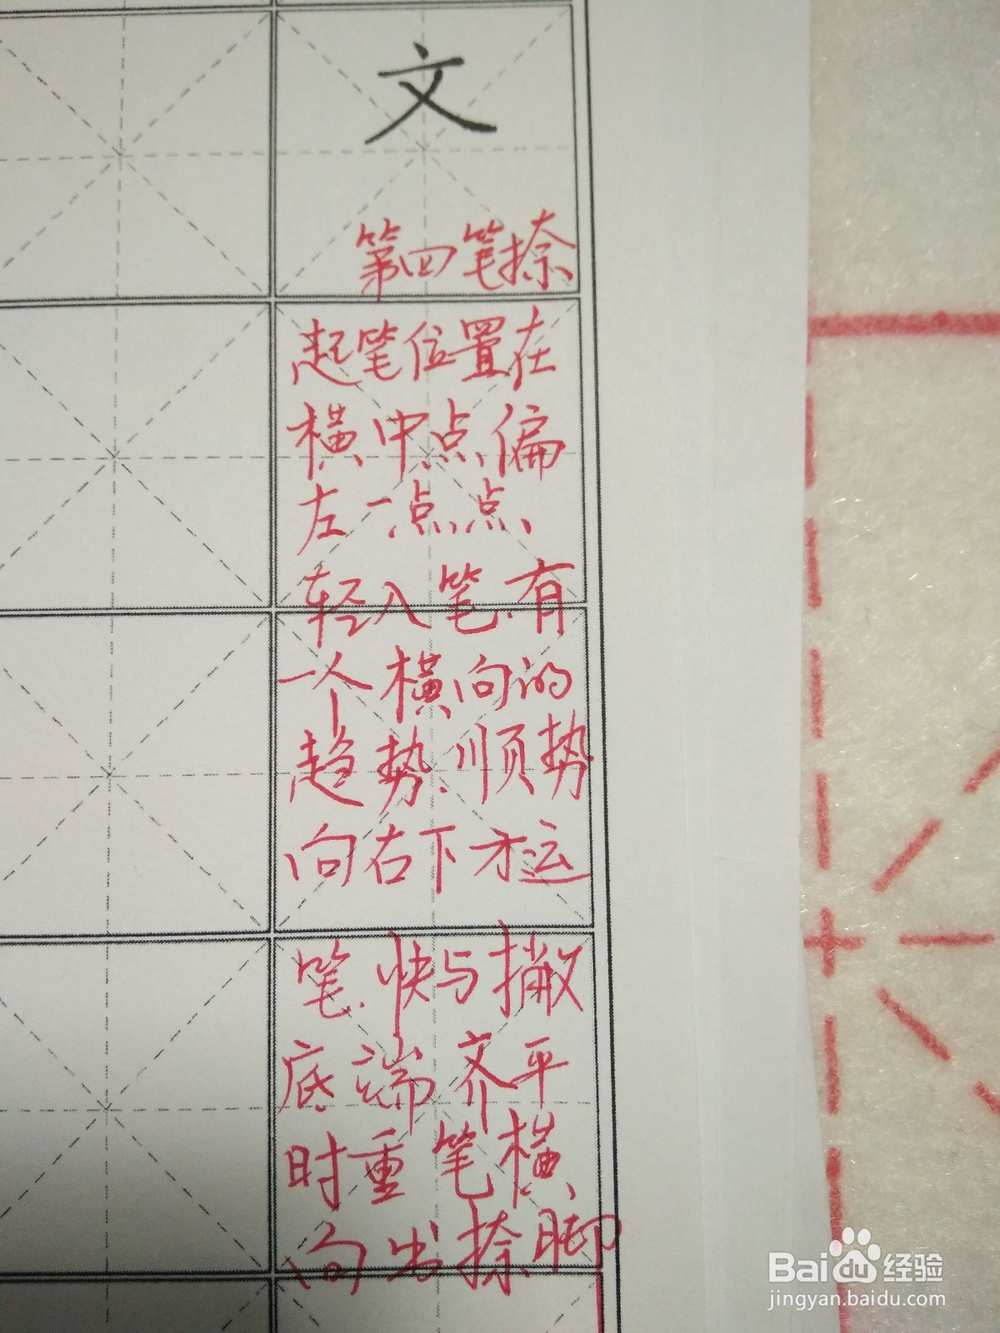 文
第四笔捺
起笔位置在
横中点偏
左一点点
轻入笔有
一个横向的
趋势顺势
向右下方运
笔快与撇
底端齐平
时重笔横
向出捺脚
Baidu经验
jingyan.baidu.com